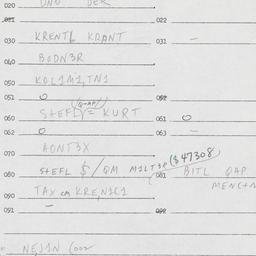 020 UND DER
021 022
030 KRENTL KRANT 031 —
040 BODN3R
050 KOL1M1,TN1
051 0 052
(QAP)
060 STEFL = KURT 061 0
062 0 063 —
070 AONT3X
080 STEFL $/QM M1LT3R ($47308) 081 BITL QAP
MENC+N
090 TAX QM KRE,N1C1
091 — 092
NEJ1N (00V